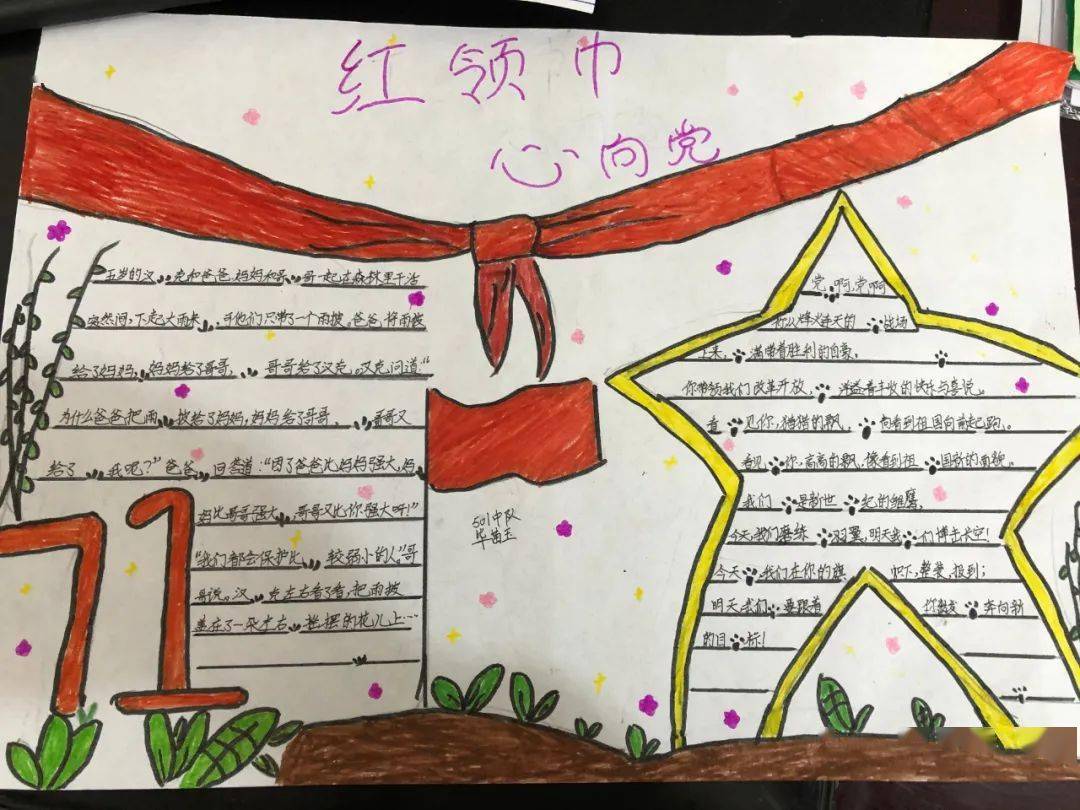 红领巾
心向党
五岁的汉克和爸爸妈妈和哥哥一起在森林里干活
突然间,下起大雨来,可他们只带了一个雨披。爸爸将雨披
给了妈妈,妈妈给了哥哥,哥哥给了汉克。汉克问道:“
为什么爸爸把雨披给了妈妈,妈妈给了哥哥,哥哥又
给了我呢?”爸爸回答道:“因了爸爸比妈妈强大,妈
妈比哥哥强大,哥哥又比你强大呀!”
“我们都会保护比较弱小的人。”哥
哥说。汉克左右看了看,把雨披
盖在了一朵左右摇摆的花儿上…
71
501中队
毕苗玉
党啊,党啊
你从烽火连天的战场
下来,满带着胜利的自豪。
你带领我们改革开放,洋溢着丰收的快乐与喜悦。
看见你,猎猎的飘,向看到祖国向前起跑。
看见你,高高的飘,像看到祖国新的面貌。
我们是新世纪的雏鹰,
今天我们磨练羽翼,明天我们博击长空!
今天我们在你的旗帜下,整装,报到;
明天我们要跟着你奔向新
的目标!